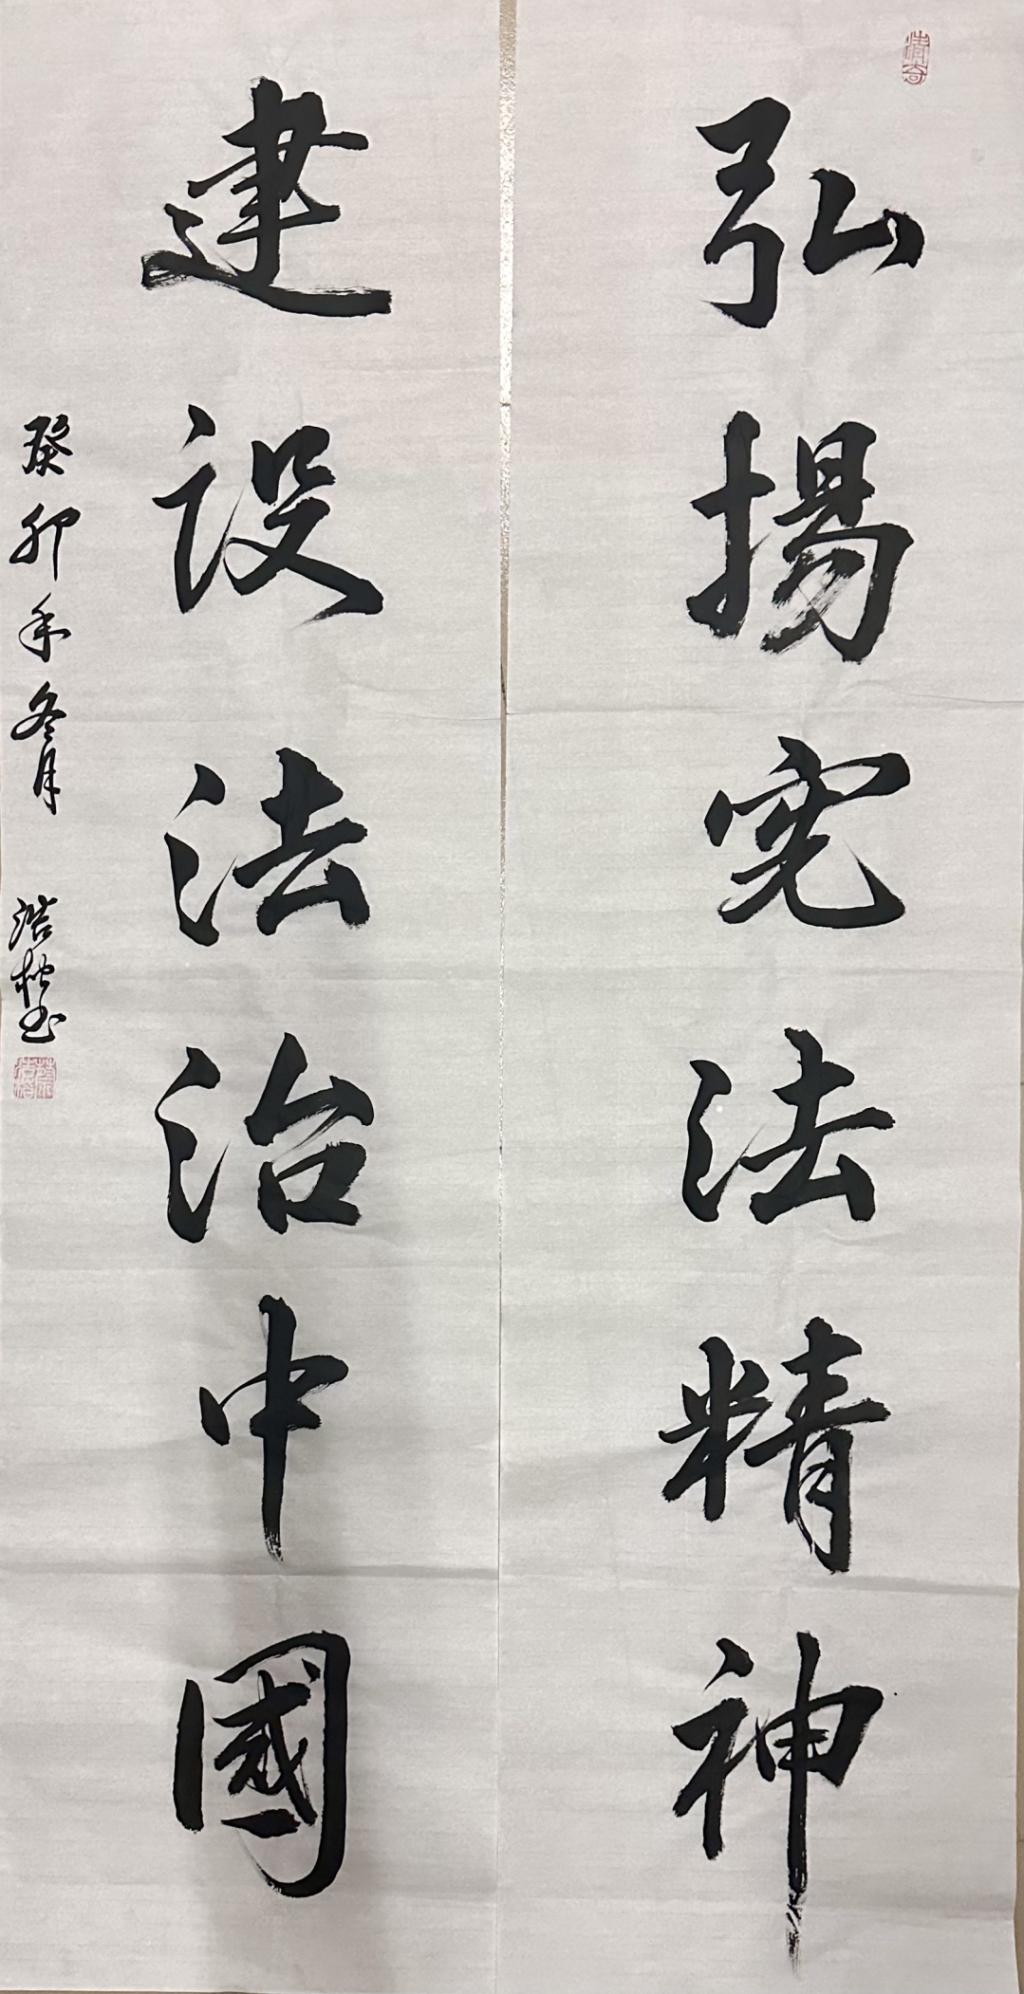 弘揚宪法精神
建設法治中國
癸卯年冬月
浩楷书